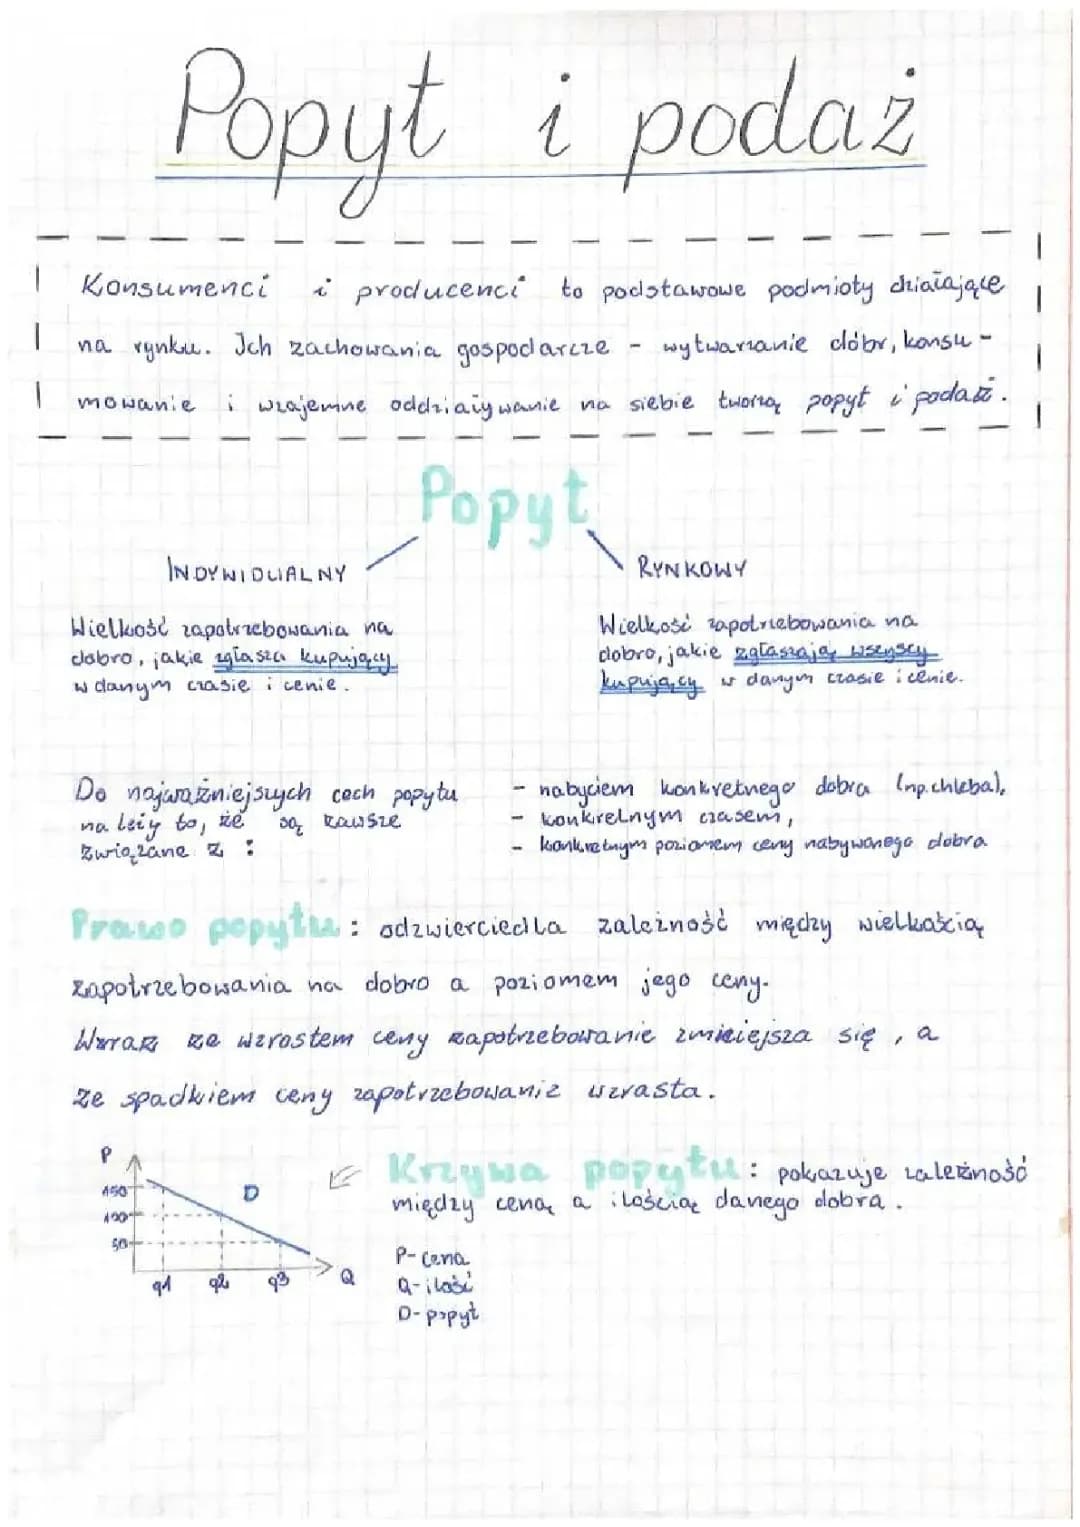 Popyt i podaż
Konsumenci i producenci to podstawowe podmioty działające
na rynku. Ich zachowania gospodarcze - wytwarzanie dóbr, konsu-
mowanie i wzajemne oddziaływanie na siebie tworzą popyt i podaż.
Popyt
INDYWIDUALNY
Wielkość zapotrzebowania na
dobro, jakie zgłasza kupujący
w danym czasie i cenie.
RYNKOWY
Wielkość zapotrzebowania na
dobro, jakie zgłaszają wszyscy
kupujący w danym czasie i cenie.
Do najważniejszych cech popytu
należy to, że są zawsze
związane z :
- nabyciem konkretnego dobra (np. chleba),
- konkretnym czasem,
- konkretnym poziomem ceny nabywanego dobra
Prawo popytu : odzwierciedla zależność między wielkością
zapotrzebowania na dobro a poziomem jego ceny.
Wraz ze wzrostem ceny zapotrzebowanie zmniejsza się, a
ze spadkiem ceny zapotrzebowanie wzrasta.
P
150
100
50
D
q1 q2 q3 Q
Krzywa popytu : pokazuje zależność
między ceną a ilością danego dobra.
P- cena
Q- ilość
D- popyt